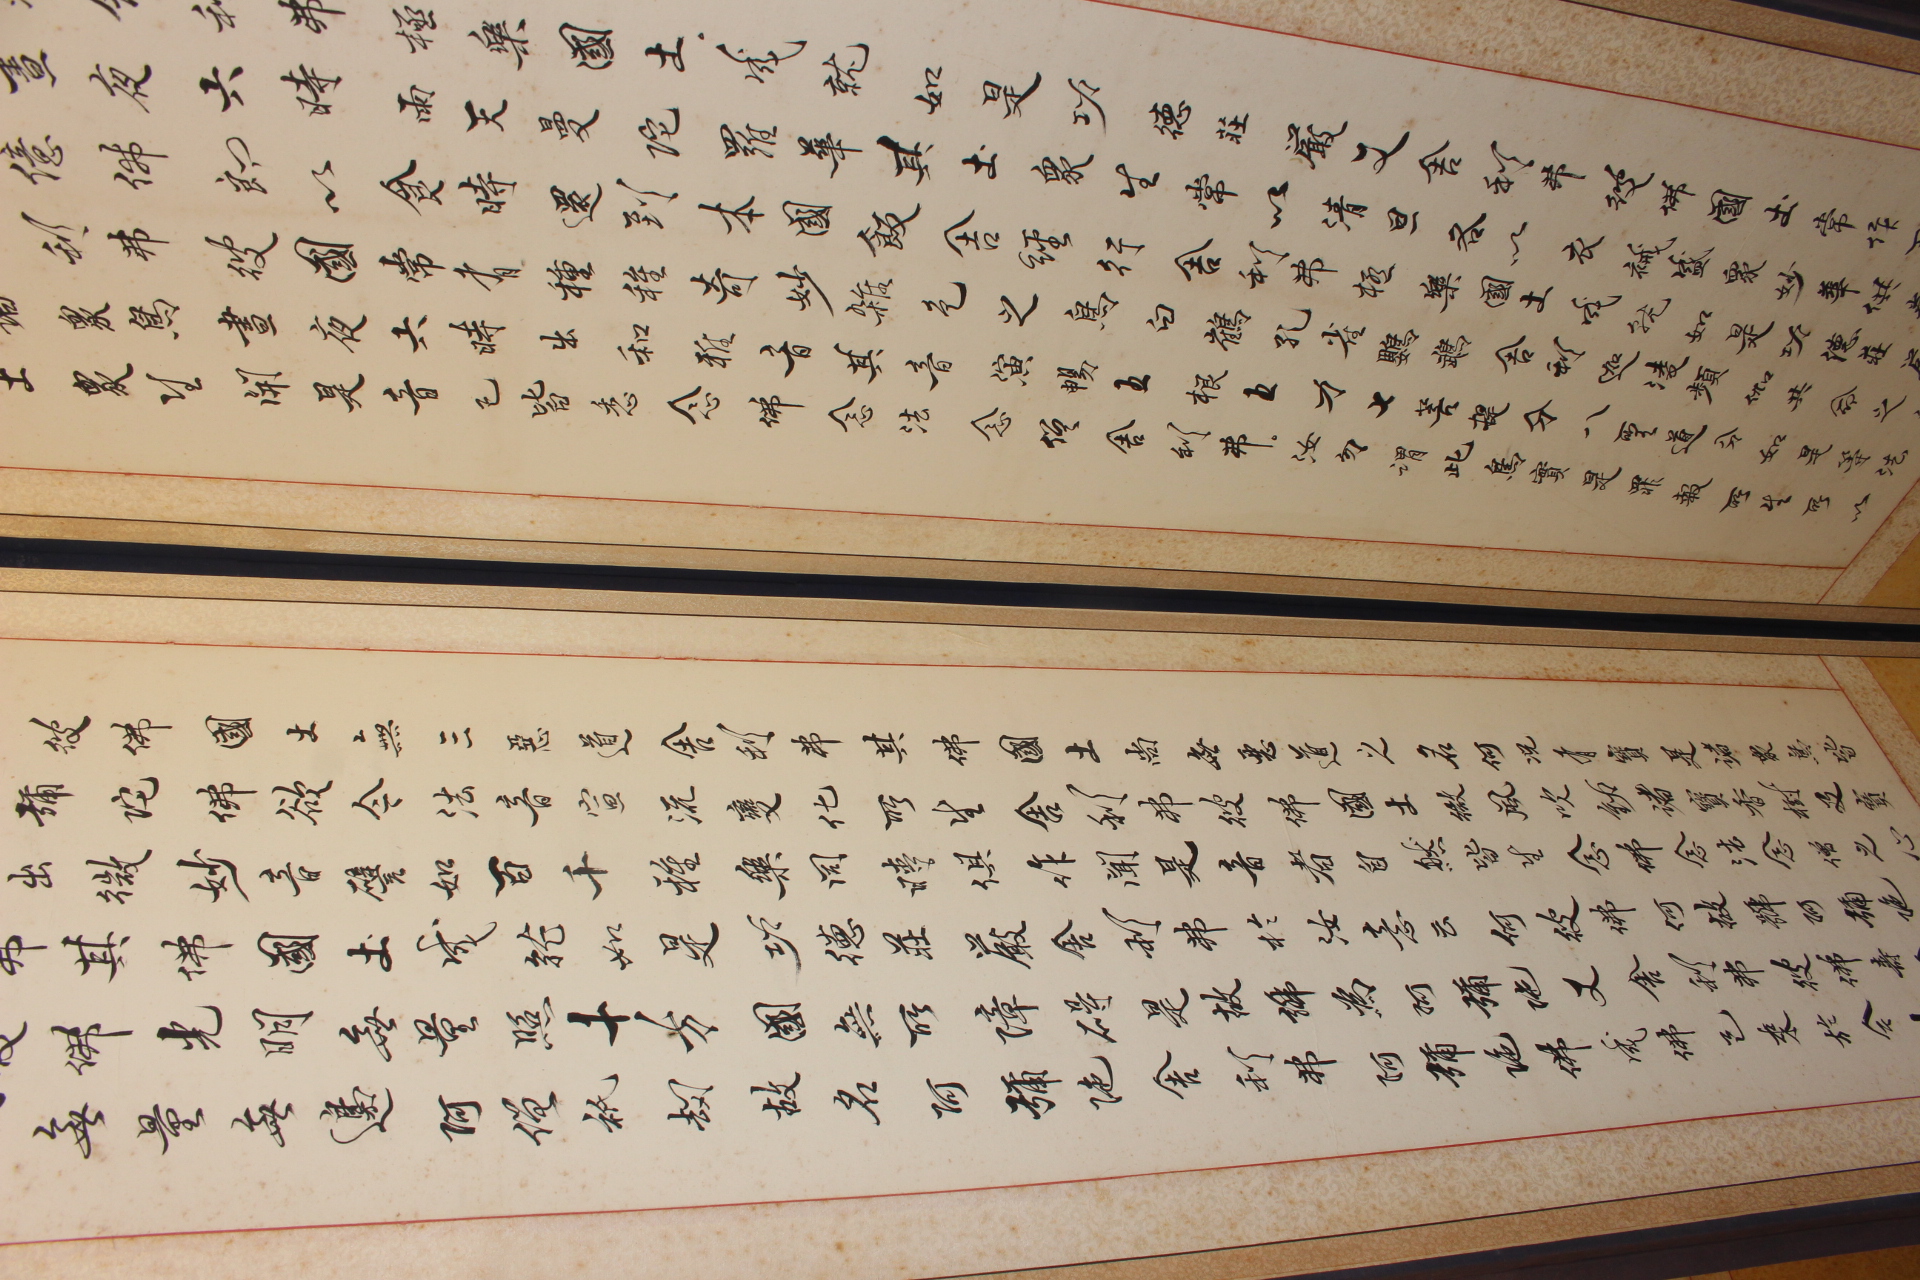 舍利弗極樂國土成就如是功德莊嚴又舍利弗彼佛國土常作
晝夜六時雨天曼陀羅華其土眾生常以清旦各以衣裓盛眾妙華供養
億佛即以食時還到本國飯舍經行舍利弗極樂國土成就如是功德莊嚴
利弗彼國常有種種奇妙雜色之鳥白鶴孔雀鸚鵡舍利迦陵頻伽共命之
諸眾鳥晝夜六時出和雅音其音演暢五根五力七菩提分八聖道分如是等法
土眾生聞是音已皆悉念佛念法念僧舍利弗。汝勿謂此鳥實是罪報所生所以
彼佛國土無三惡道舍利弗其佛國土尚無惡道之名何況有實是諸眾鳥皆
彌陀佛欲令法音宣流變化所生舍利弗彼佛國土微風吹動諸寶香樹及寶
出微妙音譬如百千種樂同時俱作聞是音者自然皆生念佛念法念僧之心
弗其佛國土成就如是功德莊嚴舍利弗於汝意云何彼佛何故號阿彌陀
彼佛光明無量照十方國無所障碍是故號為阿彌陀又舍利弗彼佛壽
無量無邊阿僧祇劫故名阿彌陀舍利弗阿彌陀佛成佛已來於今